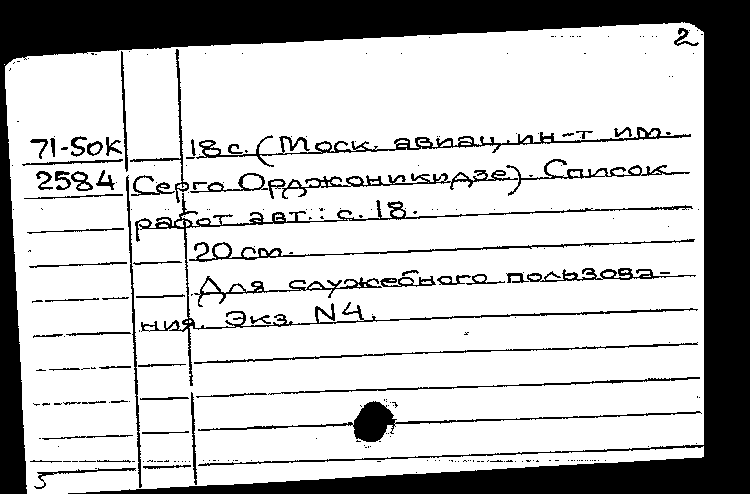 2
71-5ок 18 с. (Моск. авиац. ин-т им.
2584 Серго Орджоникидзе). Список
работ авт.: с. 18.
20 см.
Для служебного пользова-
ния. Экз. N4.
5